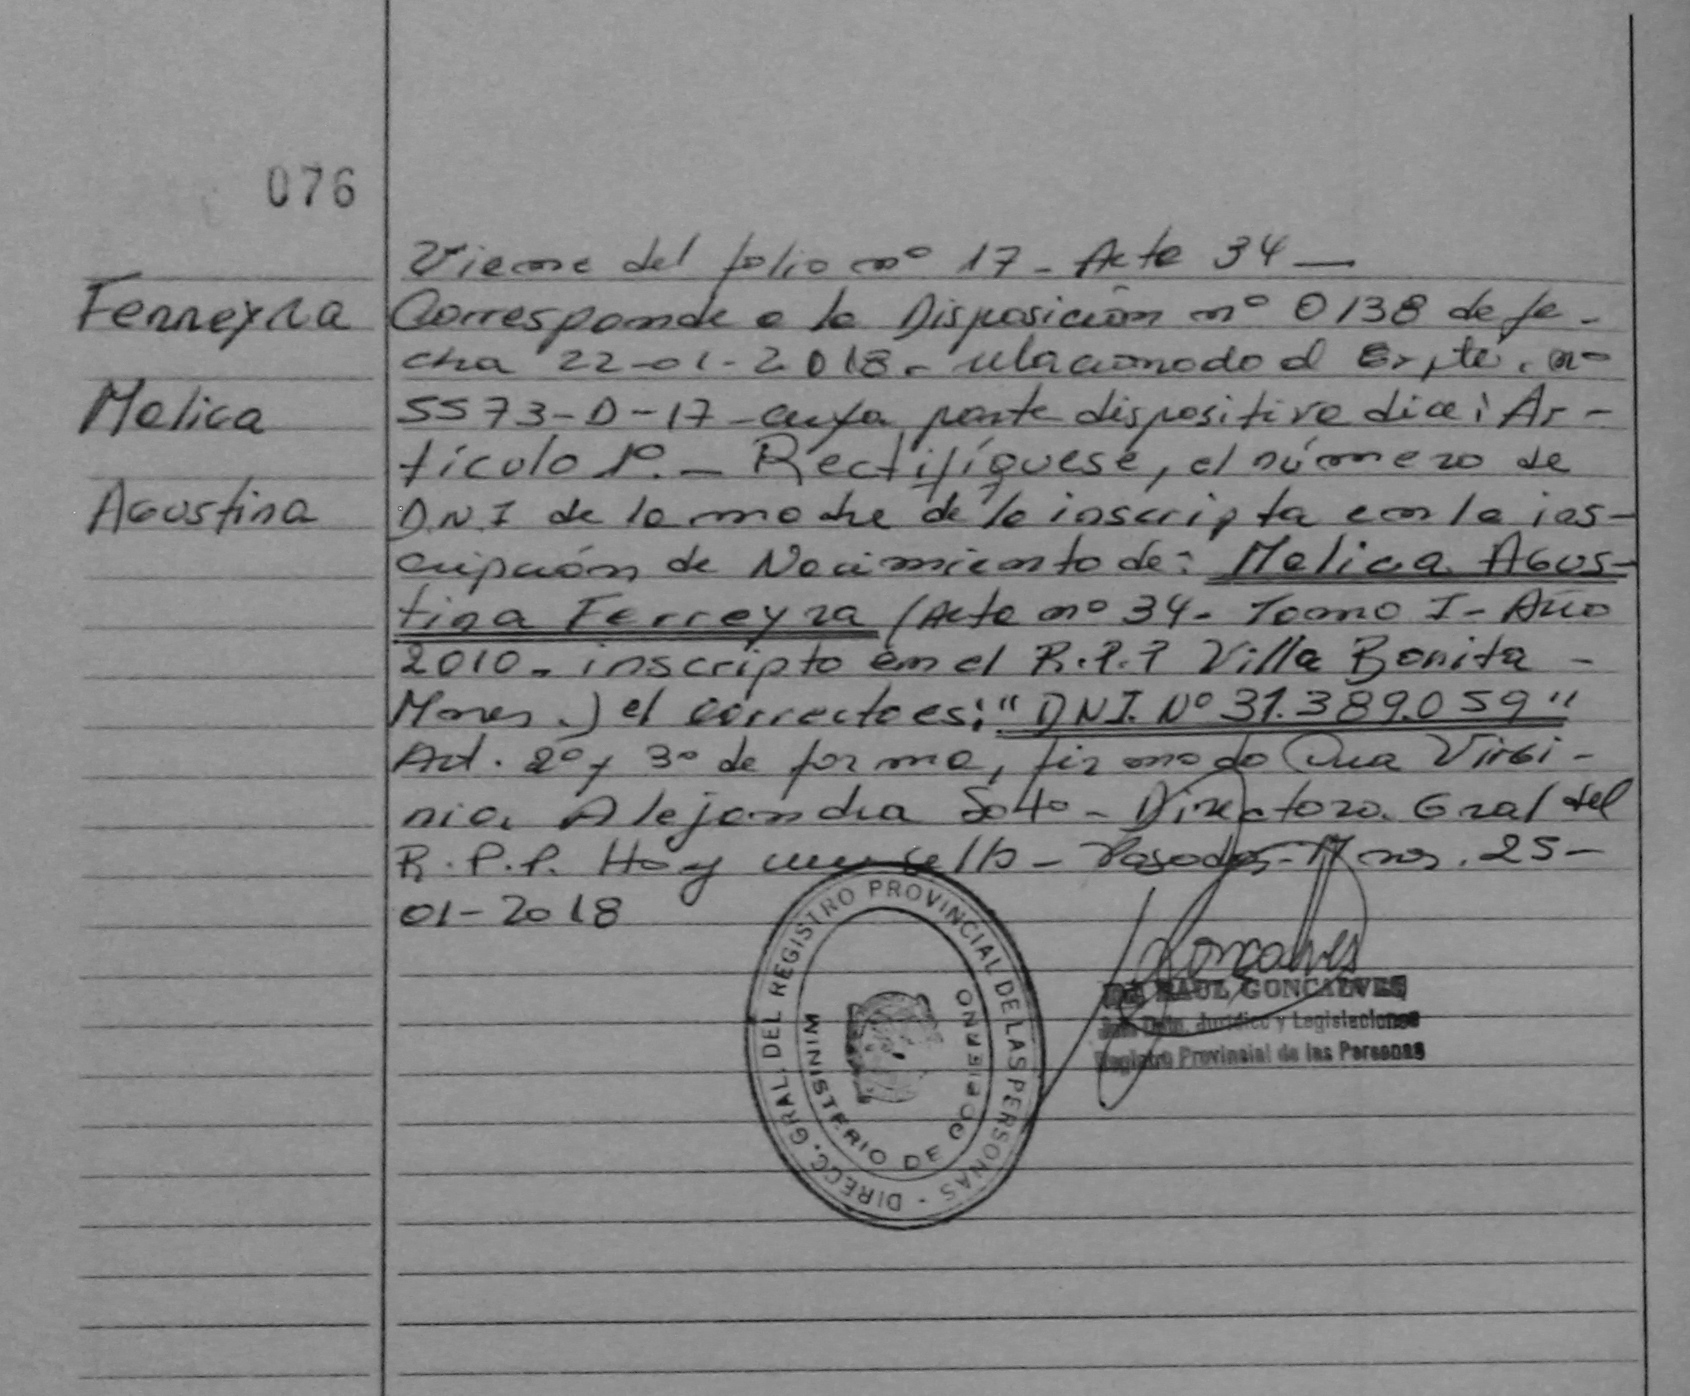 076
Viene del folio nº 17 - Acta 34 —
Ferreyra
Corresponde a la Disposición nº 0138 de fe-
cha 22-01-2018 - relacionado al Expte. nº
Melica
5573-D-17 - cuya parte dispositiva dice: Ar-
tículo 1º. - Rectifíquese, el número de
Agostina
D.N.I de la madre de la inscripta en la ins-
cripción de Nacimiento de: Melica Agos-
tina Ferreyra (Acta nº 34 - Tomo I - Año
2010 - inscripto en el R.P.P Villa Bonita -
Mnes.) el correcto es: "DNI. Nº 31.389.059"
Art. 2º y 3º de forma, firmado Dra Virgi-
nia Alejandra Soto - Directora Gral del
R.P.P. Hay un sello - Posadas - Mnes. 25-
01-2018
DIRECC. GRAL. DEL REGISTRO PROVINCIAL DE LAS PERSONAS -
MINISTERIO DE GOBIERNO
Gonçalves
RAUL GONCALVES
Jurídico y Legislaciones
Registro Provincial de las Personas